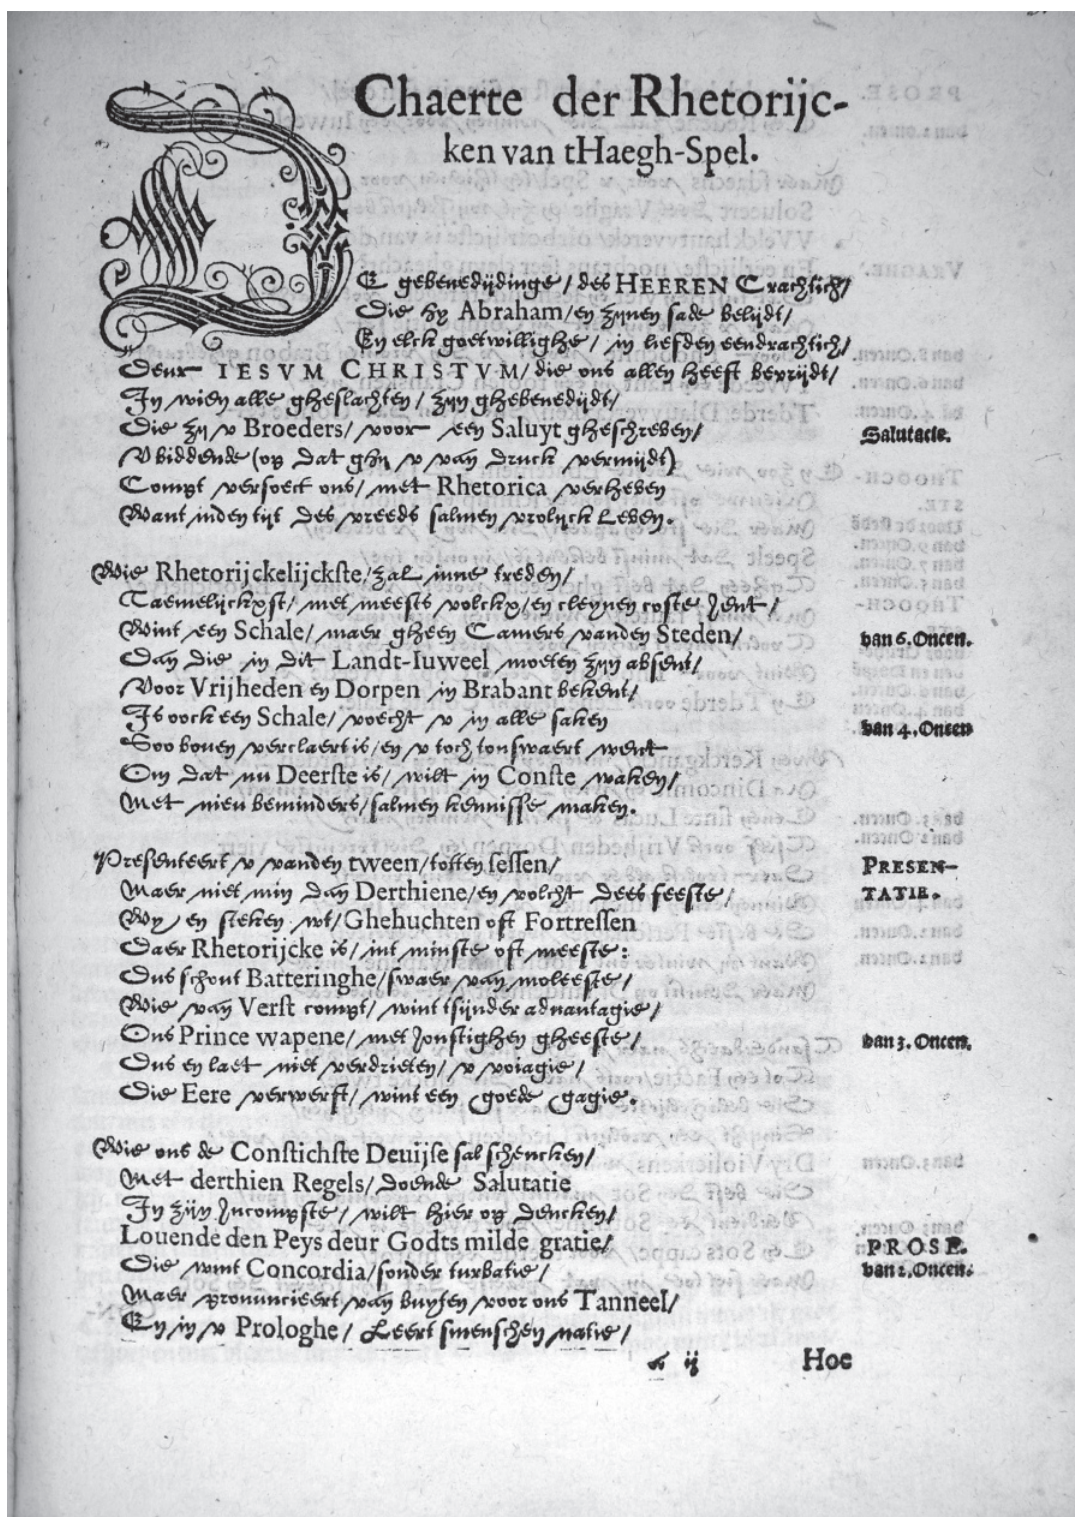 Chaerte der Rhetorijc-
ken van tHaegh-Spel.
DE gebenedijdinge/ des HEEREN Crachtich/
Die hy Abraham/ en zijnen sade belijdt/
En elck goetwillighe/ in liefden eendrachtich/
Deur IESVM CHRISTVM/ die ons allen heeft bevrijdt/
In wien alle gheslachten/ zijn ghebenedijdt/
Die zij v Broeders/ voor een Saluyt gheschreven/
Salutacie.
V biddende (op dat ghij v van druck vermijdt)
Compt versoect ons/ met Rhetorica verheven
Want inden tijt des vreeds salmen vrolijck Leven.
Wie Rhetorijckelijckste/ zal inne treden/
Taemelijckxst/ met meests volckx/ en cleynen coste Jent/
Wint een Schale/ maer gheen Camers vanden Steden/
van 6. Oncen.
Dan die in dit Landt-Iuweel moeten zijn absent/
Voor Vrijheden en Dorpen in Brabant bekent/
Is oock een Schale/ voecht v in alle saken
van 4. Oncen
Soo bouen verclaert is/ en v toch tonswaert went
Om dat nu Deerste is/ wilt in Conste waken/
Met nieu beminders/ salmen kennisse maken.
Presenteert v vanden tween/ totten sessen/
PRESEN-
Maer niet min dan Derthiene/ en volcht dees feeste/
TATIE.
Wy en steken wt/ Ghehuchten oft Fortressen
Daer Rhetorijcke is/ int minste oft meeste:
Dus schout Batteringhe/ swaer van moleeste/
Wie van Verst compt/ wint tsijnder aduantagie/
Ons Prince wapene/ met Jonstighen gheeste/
van 3. Oncen.
Dus en laet niet verdrieten/ v voiagie/
Die Eere verwerft/ wint een goede gagie.
Wie ons de Constichste Deuijse sal schencken/
Met derthien Regels/ doende Salutatie
In zijn Incompste/ wilt hier op dencken/
Louende den Peys deur Godts milde gratie/
PROSE.
Die wint Concordia/ sonder turbatie/
van 2. Oncen.
Maer pronuncieert van buyten voor ons Tanneel/
En in v Prologhe/ Leert smenschen natie/
ij
Hoe